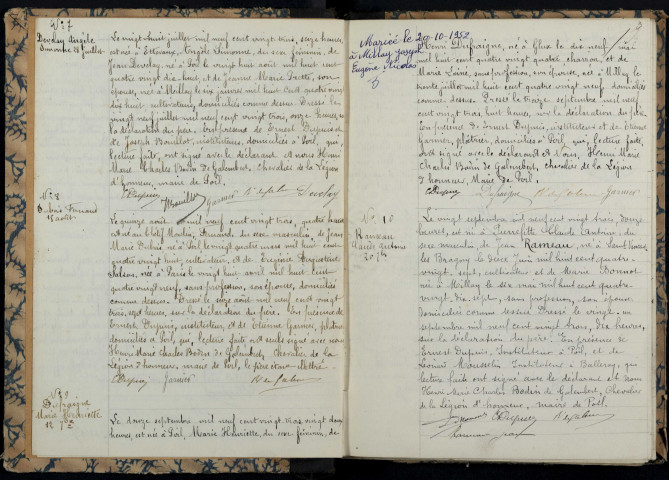 N° 7
Devalay Angèle
Simonne 28 juillet
Le vingt huit juillet mil neuf cent vingt trois, seize heures,
est née à Angèle Simonne, du sexe féminin, de
Jean Devalay, né à Poil le vingt août mil huit cent
quatre vingt dix huit, et de Jeanne Marie son
épouse, née à Millay le six janvier mil huit cent quatre vingt
dix huit cultivateurs, domiciliés comme dessus. Dressé le
vingt neuf juillet mil neuf cent vingt trois, onze heures, sur
la déclaration du père. En présence de Ernest Dupuis et
de Joseph instituteurs, domiciliés à Poil, qui,
lecture faite, ont signé avec le déclarant et nous Henri
Marie Charles Bodin de Galembert, Chevalier de la Légion
d'honneur, maire de Poil.
N° 8
Dubois Fernand
15 août
Le quinze août mil neuf cent vingt trois, quatre heures
est né au Moulin, Fernand, du sexe masculin, de Jean
Marie Dubois né à Poil le vingt quatre mars mil huit cent
quatre vingt huit, cultivateur, et de Virginie Augustine
née à Paris le vingt août mil huit cent
quatre vingt neuf, sans profession, son épouse, domiciliés
comme dessus. Dressé le seize août mil neuf cent vingt
trois, sept heures, sur la déclaration du père. En présence de
Ernest Dupuis, instituteur, et de Etienne Garnier, plâtrier
domiciliés à Poil, qui, lecture faite ont seuls signé avec nous
Henri Marie Charles Bodin de Galembert, Chevalier de la
Légion d'honneur, maire de Poil, le père étant illettré.
N° 9
Defraigne
Marie Henriette
12 7bre
Le douze septembre mil neuf cent vingt trois vingt deux
heures, est née à Poil, Marie Henriette, du sexe féminin, de
Mariée le 20-10-1952
à Millay Joseph
Eugène Nicolas
Henri Defraigne, né à Glux le dix neuf mai
mil huit cent quatre vingt quatre, charron, et de
Marie sans profession, son épouse, née à Millay le
trente juillet mil huit cent quatre vingt neuf, domiciliés
comme dessus. Dressé le treize septembre mil neuf
cent vingt trois, huit heures, sur la déclaration du père
En présence de Ernest Dupuis, instituteur et de Etienne
Garnier, plâtrier, domiciliés à Poil, qui, lecture faite,
ont signé avec le déclarant et Nous, Henri Marie
Charles Bodin de Galembert, Chevalier de la Légion
d'honneur, Maire de Poil.
N° 10
Rameau
Claude Antoine
20 7bre
Le vingt septembre mil neuf cent vingt trois, douze
heures, est né à Pierrefitte Claude Antoine, du
sexe masculin, de Jean Rameau, né à Saint Léger
quatre-
vingt-sept, cultivateur et de Marie Bonnot
née à Millay le six mai mil huit cent quatre-
vingt-dix-sept, sans profession, son épouse
domiciliés comme dessus. Dressé le vingt-un
septembre mil neuf cent vingt trois, dix heures,
sur la déclaration du père. En présence de
Ernest Dupuis, Instituteur à Poil, et de
Léonard Instituteur à qui
lecture faite ont signé avec le déclarant et nous
Henri Marie Charles Bodin de Galembert, Chevalier
de la Légion d'honneur, maire de Poil.